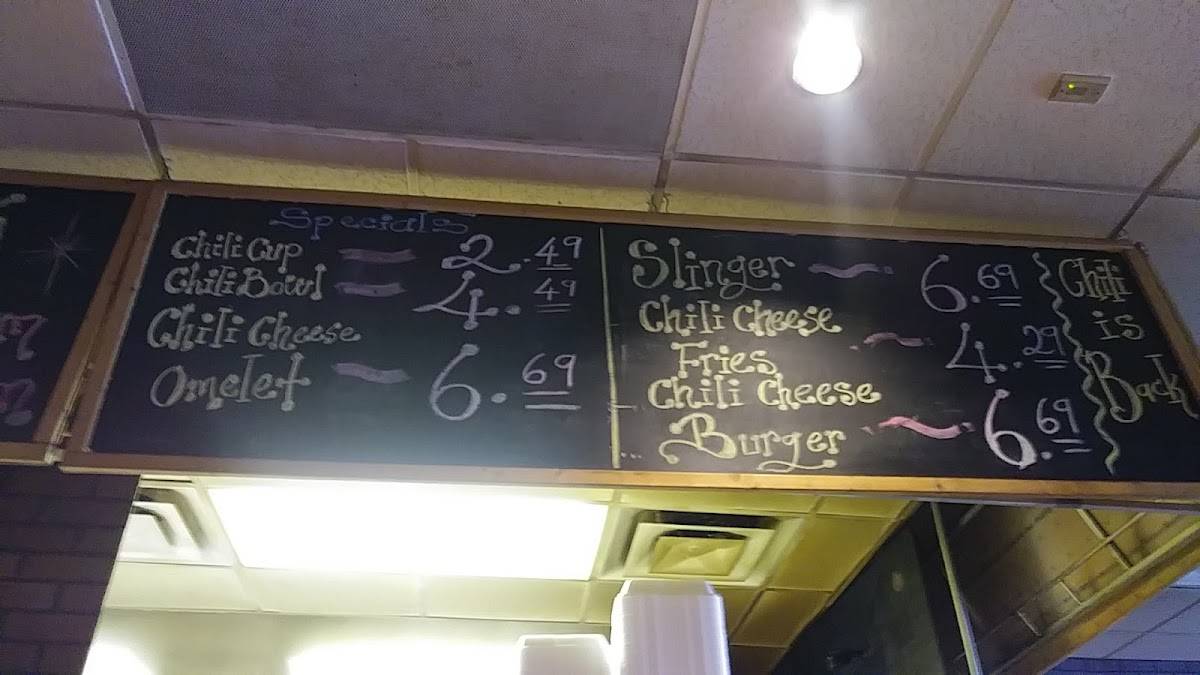 Specials
Chili Cup 2.49
Chili Bowl 4.49
Chili Cheese
Omelet 6.69
Slinger 6.69
Chili Cheese
Fries 4.29
Chili Cheese
Burger 6.69
Chili
is
Back